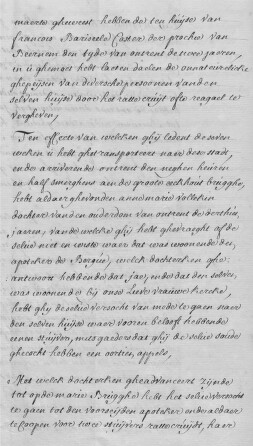 maerte ghewent hebbende ten huijse van
francois Bariseel coster der prochie van
Beernem den tyde van ontrent de twee jaeren,
in u ghenight hebt laeten daelen de onnatuerelicke
ghepijsen van diversche persoonen vanden
selven huijse door het rattecruijt ofte reagael te
vergheven,
Ten effecte van welcken ghij leden t' seven
weken u hebt ghetransporteert naer dese stadt,
ende arriverende ontrent den neghen heuren
en half smorghens aen de groote eechout brugghe,
hebt aldaer ghevonden annemarie vollekin
dochtere van den ouderdom van ontrent de derthien
jaeren, van de welcke ghij hebt ghevraeght of de
selve niet en wiste waer dat was woonende den
apoteker de Borgrie, welck dochterken ghe-
antwoort hebbende dat jae, ende dat den selven
was woonende bij onse Lieve vrauwe kercke,
hebt ghij de selve versocht van mede te gaen naer
den selven huijse waer vooren belooft hebbende
eenen stuijver, mitsgaeders dat ghij de selve soude
ghecocht hebben een oortien, appels,
Het welck dochterken gheadvanceert zijnde
tot op de marie Brugghe hebt het selve versocht
te gaen tot den voorseyden apoteker ende aldaer
te coopen voor twee stuijvers rattecruijt, haer